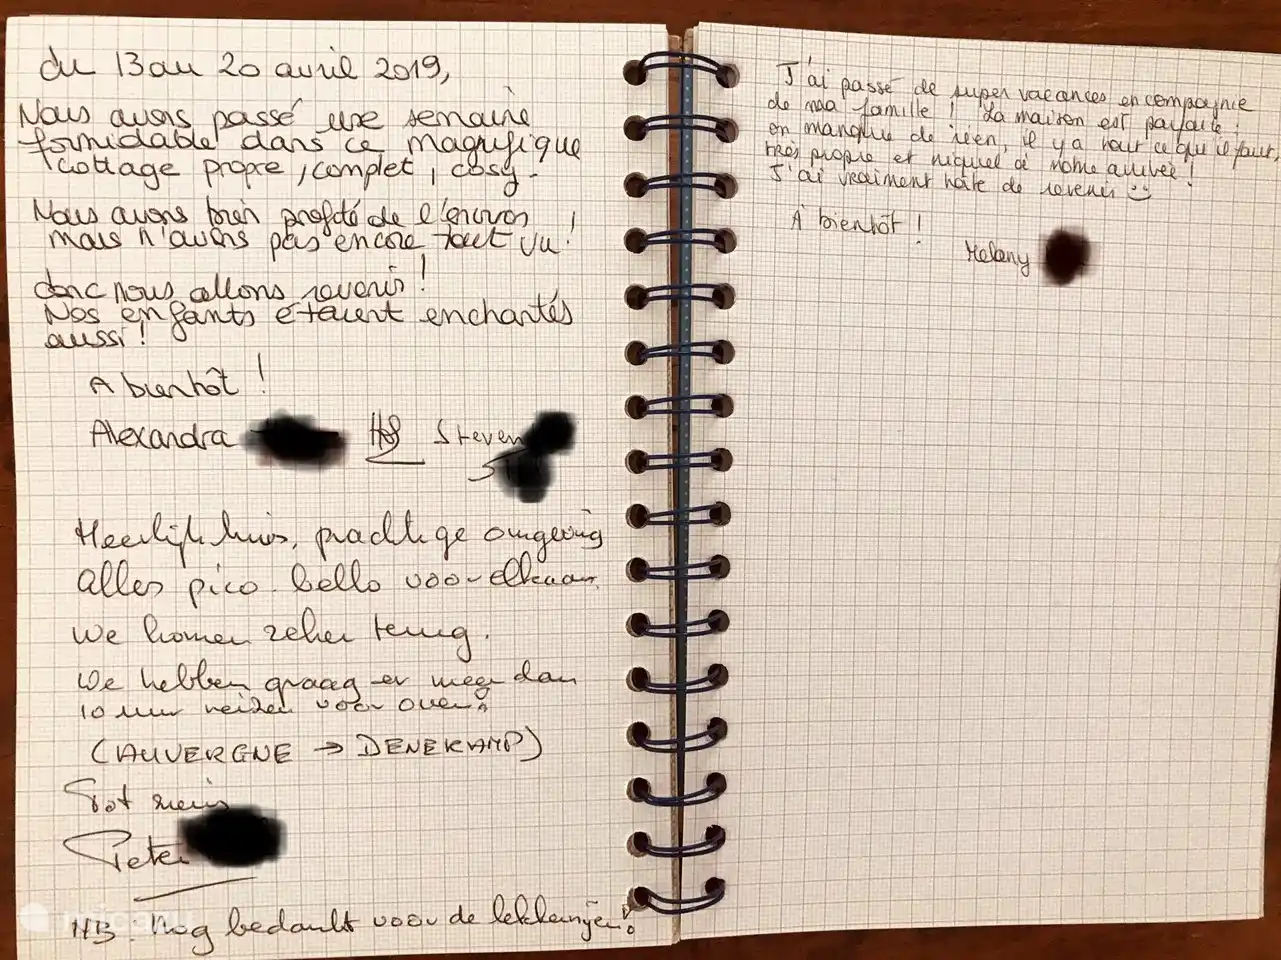 du 13 au 20 avril 2019,
Nous avons passé une semaine
formidable dans ce magnifique
cottage propre, complet, cosy.
Nous avons bien profité de l'environ
mais n'avons pas encore tout vu!
donc nous allons revenir!
Nos enfants étaient enchantés
aussi!
A bientôt!
Alexandra Steven
Heerlijk huis, prachtige omgeving
alles pico bello voor elkaar.
We komen zeker terug.
We hebben graag er meer dan
10 uur reizen voor over!
(AUVERGNE → DENEKAMP)
Tot
Peter
NB. Nog bedankt voor de lekkernijen!
J'ai passé de super vacances en compagnie
de ma famille! La maison est parfaite:
en manque de rien, il y a tout ce qu'il faut,
très propre et niquel à notre arrivée!
J'ai vraiment hâte de revenir
À bientôt!
Melany
micazu